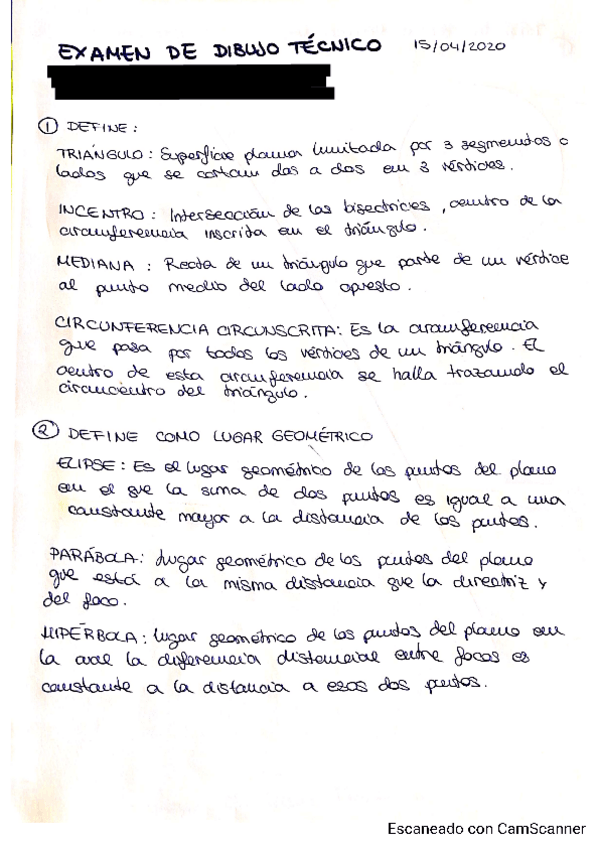 EXAMEN DE DIBUJO TÉCNICO 15/04/2020
① DEFINE:
TRIÁNGULO: Superficie plana limitada por 3 segmentos o
lados que se cortan dos a dos en 3 vértices.
INCENTRO: Intersección de las bisectrices, centro de la
circunferencia inscrita en el triángulo.
MEDIANA: Recta de un triángulo que parte de un vértice
al punto medio del lado opuesto.
CIRCUNFERENCIA CIRCUNSCRITA: Es la circunferencia
que pasa por todos los vértices de un triángulo. El
centro de esta circunferencia se halla trazando el
circuncentro del triángulo.
② DEFINE COMO LUGAR GEOMÉTRICO
ELIPSE: Es el lugar geométrico de los puntos del plano
en el que la suma de dos puntos es igual a una
constante mayor a la distancia de los puntos.
PARÁBOLA: Lugar geométrico de los puntos del plano
que está a la misma distancia que la directriz y
del foco.
HIPÉRBOLA: lugar geométrico de los puntos del plano en
la cual la diferencia distancial entre focos es
constante a la distancia a esos dos puntos.
Escaneado con CamScanner